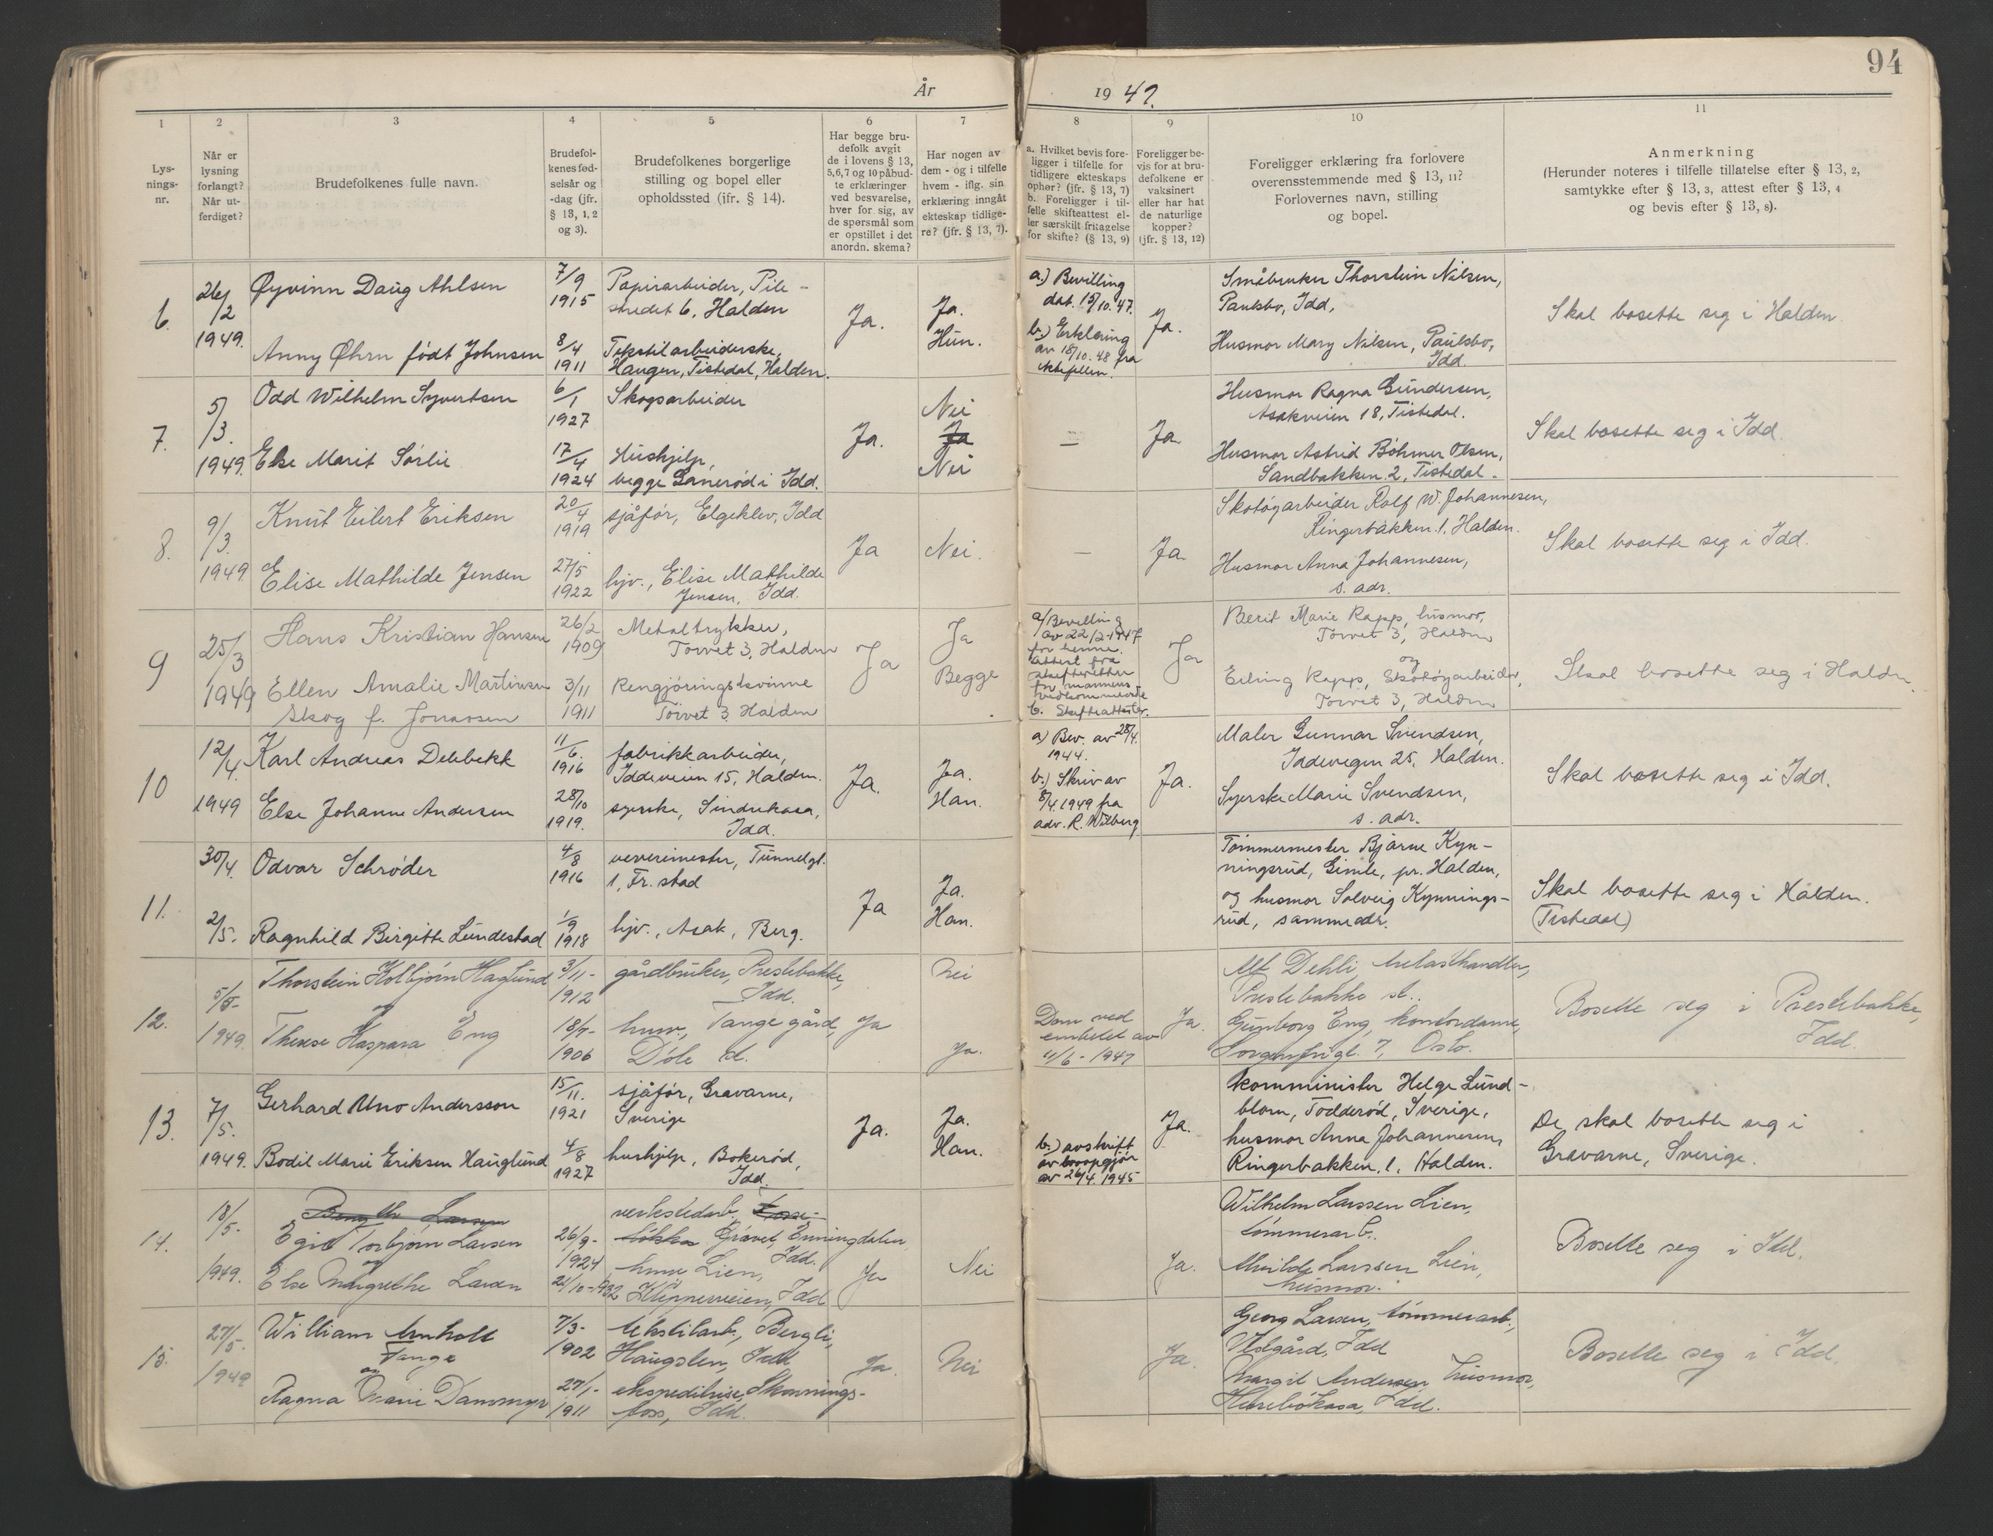 94
År
19 49.
1
2
3
4
5
6
7
8
9
10
11
Lys-
nings-
nr.
Når er
lysning
forlangt?
Når ut-
ferdiget?
Brudefolkenes fulle navn.
Brudefol-
kenes fød-
selsår og
-dag (jfr.
§ 13, 1, 2
og 3).
Brudefolkenes borgerlige
stilling og bopel eller
opholdssted (ifr. § 14).
Har begge bru-
defolk avgit
de i lovens § 13,
5,6,7 og 10 påbud-
te erklæringer
ved besvarelse,
hver for sig, av
de spørsmål som
er opstillet i det
anordn. skema?
Har nogen av
dem - og i tilfelle
hvem - iflg. sin
erklæring inngått
ekteskap tidlige-
re? (jfr. § 13, 7).
a. Hvilket bevis fore-
ligger i tilfelle for
tidligere ekteskaps
ophør? (jfr. § 13, 7)
b. Foreligger i til-
felle skifteattest el-
ler særskilt fritagelse
for skifte? (§ 13, 9)
Foreligger be-
vis for at bru-
defolkene er
vaksinert
eller har hat
de naturlige
kopper?
(jfr. § 13, 12)
Foreligger erklæring fra forlovere
overensstemmende med § 13, 11?
Forlovernes navn, stilling
og bopel.
Anmerkning
(Herunder noteres i tilfelle tillatelse efter § 13, 2,
samtykke efter § 13, 3, attest efter § 13, 4
og bevis efter § 13, 8).
6.
26/2
1949.
Øyvinn Daug Ahlsen
7/9
1915
Papirarbeider, Pile-
stredet 6, Halden
Anny Øhrn født Johnsen
8/4
1911
Tekstilarbeiderske,
Haugen, Tistedal, Halden.
Ja.
Ja.
Hun.
a.) Bevilling
dat. 15/10.47.
b.) Erklæring
av 18/10.48 fra
ektefellen.
Ja.
Småbruker Thorstein Nilsen,
Paulsbo, Idd,
Husmor Mary Nilsen, Paulsbo,
Idd.
Skal bosette seg i Halden.
7.
5/3.
1949.
Odd Wilhelm Syvertsen
6/1
1927
Skogsarbeider
Else Marit Sørlie
17/4
1924
Hushjelp,
begge Ganerød i Idd.
Ja.
Nei
Ja
Nei
—
Ja.
Husmor Ragna Gundersen,
Asakveien 18, Tistedal.
Husmor Astrid Bøhmer Olsen,
Sandbakken 2, Tistedal.
Skal bosette seg i Idd.
8.
9/3.
1949
Knut Eilert Eriksen
20/4
1919
sjåfør, Elgeklev, Idd
Elise Mathilde Jensen
27/5
1922
hjv., Elise Mathilde
Jensen, Idd.
Ja
Nei.
—
Ja.
Skotøyarbeider Rolf W. Johannesen,
Ringerbakken 1, Halden.
Husmor Anna Johannesen,
s. adr.
Skal bosette seg i Idd.
9
25/3
1949
Hans Kristian Hansen
26/2
1909
Metaltrykker,
Torvet 3, Halden
Ellen Amalie Martinsen
Skog f. Jonassen
3/11
1911
Rengjøringskvinne
Torvet 3, Halden
Ja
Ja
Begge
a/ Bevilling
av 22/2-1947
for henne.
Attest fra
skifteretten
for mannens
vedkommende
b. Skifteattester.
Ja
Berit Marie Rapp, husmor,
Torvet 3, Halden
og
Erling Rapp, Skotøyarbeider,
Torvet 3, Halden
Skal bosette seg i Halden.
10
12/4
1949
Karl Andreas Delebekk
11/6.
1916
fabrikkarbeider,
Iddeveien 15, Halden.
Else Johanne Andersen
28/10
1919.
syerske, Sindrekasa,
Idd.
Ja.
Ja.
Han.
a) Bev. av 28/4.
1944.
b.) Skriv av
8/4.1949 fra
adv. R. Wiberg
Ja.
Maler Gunnar Svendsen,
Iddevegen 25, Halden.
Syerske Marie Svendsen,
s. adr.
Skal bosette seg i Idd.
11.
30/4.
2/5.
Odvar Schrøder
4/8
1916
veverimester, Tunnelgt.
1, Fr.stad
Ragnhild Birgitte Lundestad
1/9
1918
hjv., Asak, Berg.
Ja
Ja.
Han.
Tømmermester Bjarne Kyn-
ningsrud, Gimle, pr. Halden,
og husmor Solveig Kynnings-
rud, samme adr.
Skal bosette seg i Halden.
(Tistedal)
12.
5/5-
1949.
Thorstein Kolbjørn Haglund
og
Therese Kaspara Eng
3/11-
1912
gårdbruker, Prestebakke,
Idd.
18/7-
1906
husv., Tange gård,
Ja
Nei
Ja.
Dom ved
embedet av
11/6-1947
Ja.
Alf Dehli, trelasthandler,
Prestebakke st..
Gunborg Eng, kontordame,
Sorgenfrigt. 7, Oslo.
Bosette seg i Prestebakke,
Idd.
13.
7/5.
1949.
Gerhard Uno Andersson
15/11.
1921
sjåfør, Gravarne,
Sverige
Bodil Marie Eriksen Hauglund
4/8
1927
hushjelp, Bokerød,
Idd.
Ja.
Ja.
Han.
b.) avskrift
av booppgjør
av 26/4.1945
Ja.
Komminister Helge Lund-
blom, Todderød, Sverige,
husmor Anna Johannesen,
Ringerbakken 1, Halden.
De skal bosette seg i
Gravarne, Sverige.
14.
18/5-
1949.
Egil Torbjørn Larsen
og
Else Margrethe Larsen
26/9-
1924
verkstedarb.
Gravet, Enningdalen,
Idd.
21/10-1932
husv. Lien,
Klepperveien, Idd
Ja
Nei
Ja.
Wilhelm Larssen Lien,
tømmerarb.
Alvilde Larssen Lien,
husmor.
Bosette seg i Idd.
15.
27/5-
1949
William Arnholt
Tange
og
Ragna Marie Dammyr
7/3-
1902
tekstilarb., Bergli,
Haugsten, Idd
27/1-
1911
ekspeditrise, Skonnings-
foss, Idd.
Ja.
Nei
Ja.
Georg Larsen, tømmerarb.,
Vedgård, Idd
Margit Andersen, husmor,
Idd.
Bosette seg i Idd.